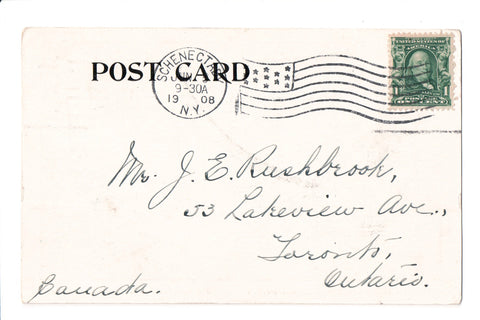 POST CARD
SCHENECTADY
9-30A
1908
N.Y.
UNITED STATES OF AMERICA
1
ONE CENT
Mr. J. E. Rushbrook,
53 Lakeview Ave.,
Toronto,
Ontario.
Canada.